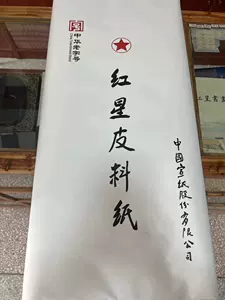 中华老字号
红星皮料纸
中國宣纸股份有限公司